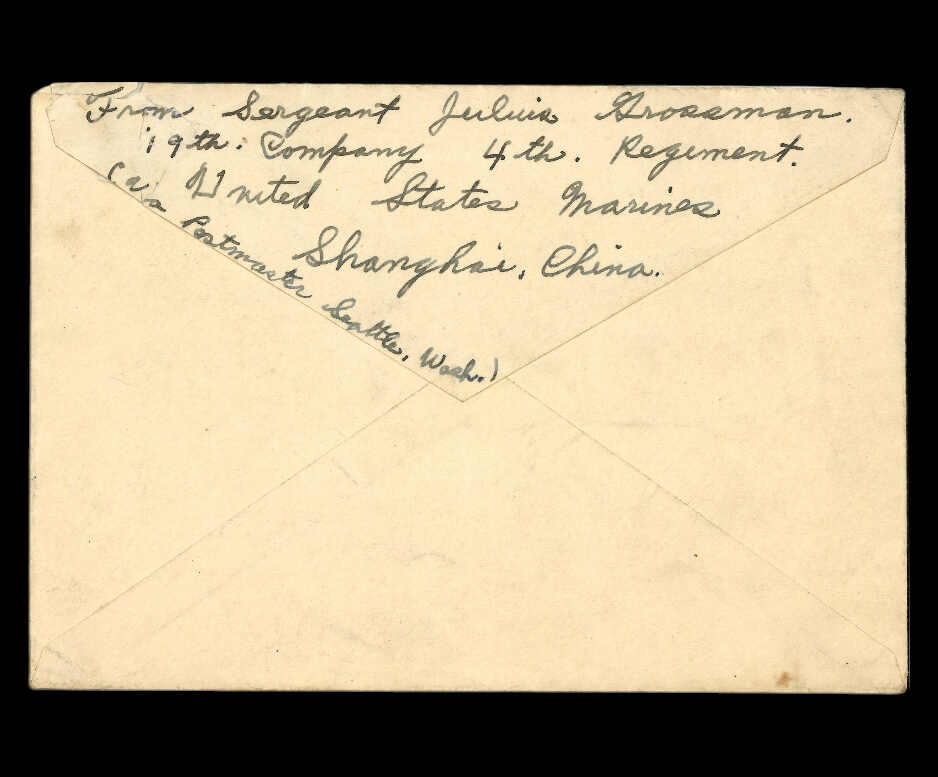 From Sergeant Julius Grossman.
19th. Company 4th. Regiment.
United States Marines
Shanghai, China.
Postmaster Seattle, Wash.)